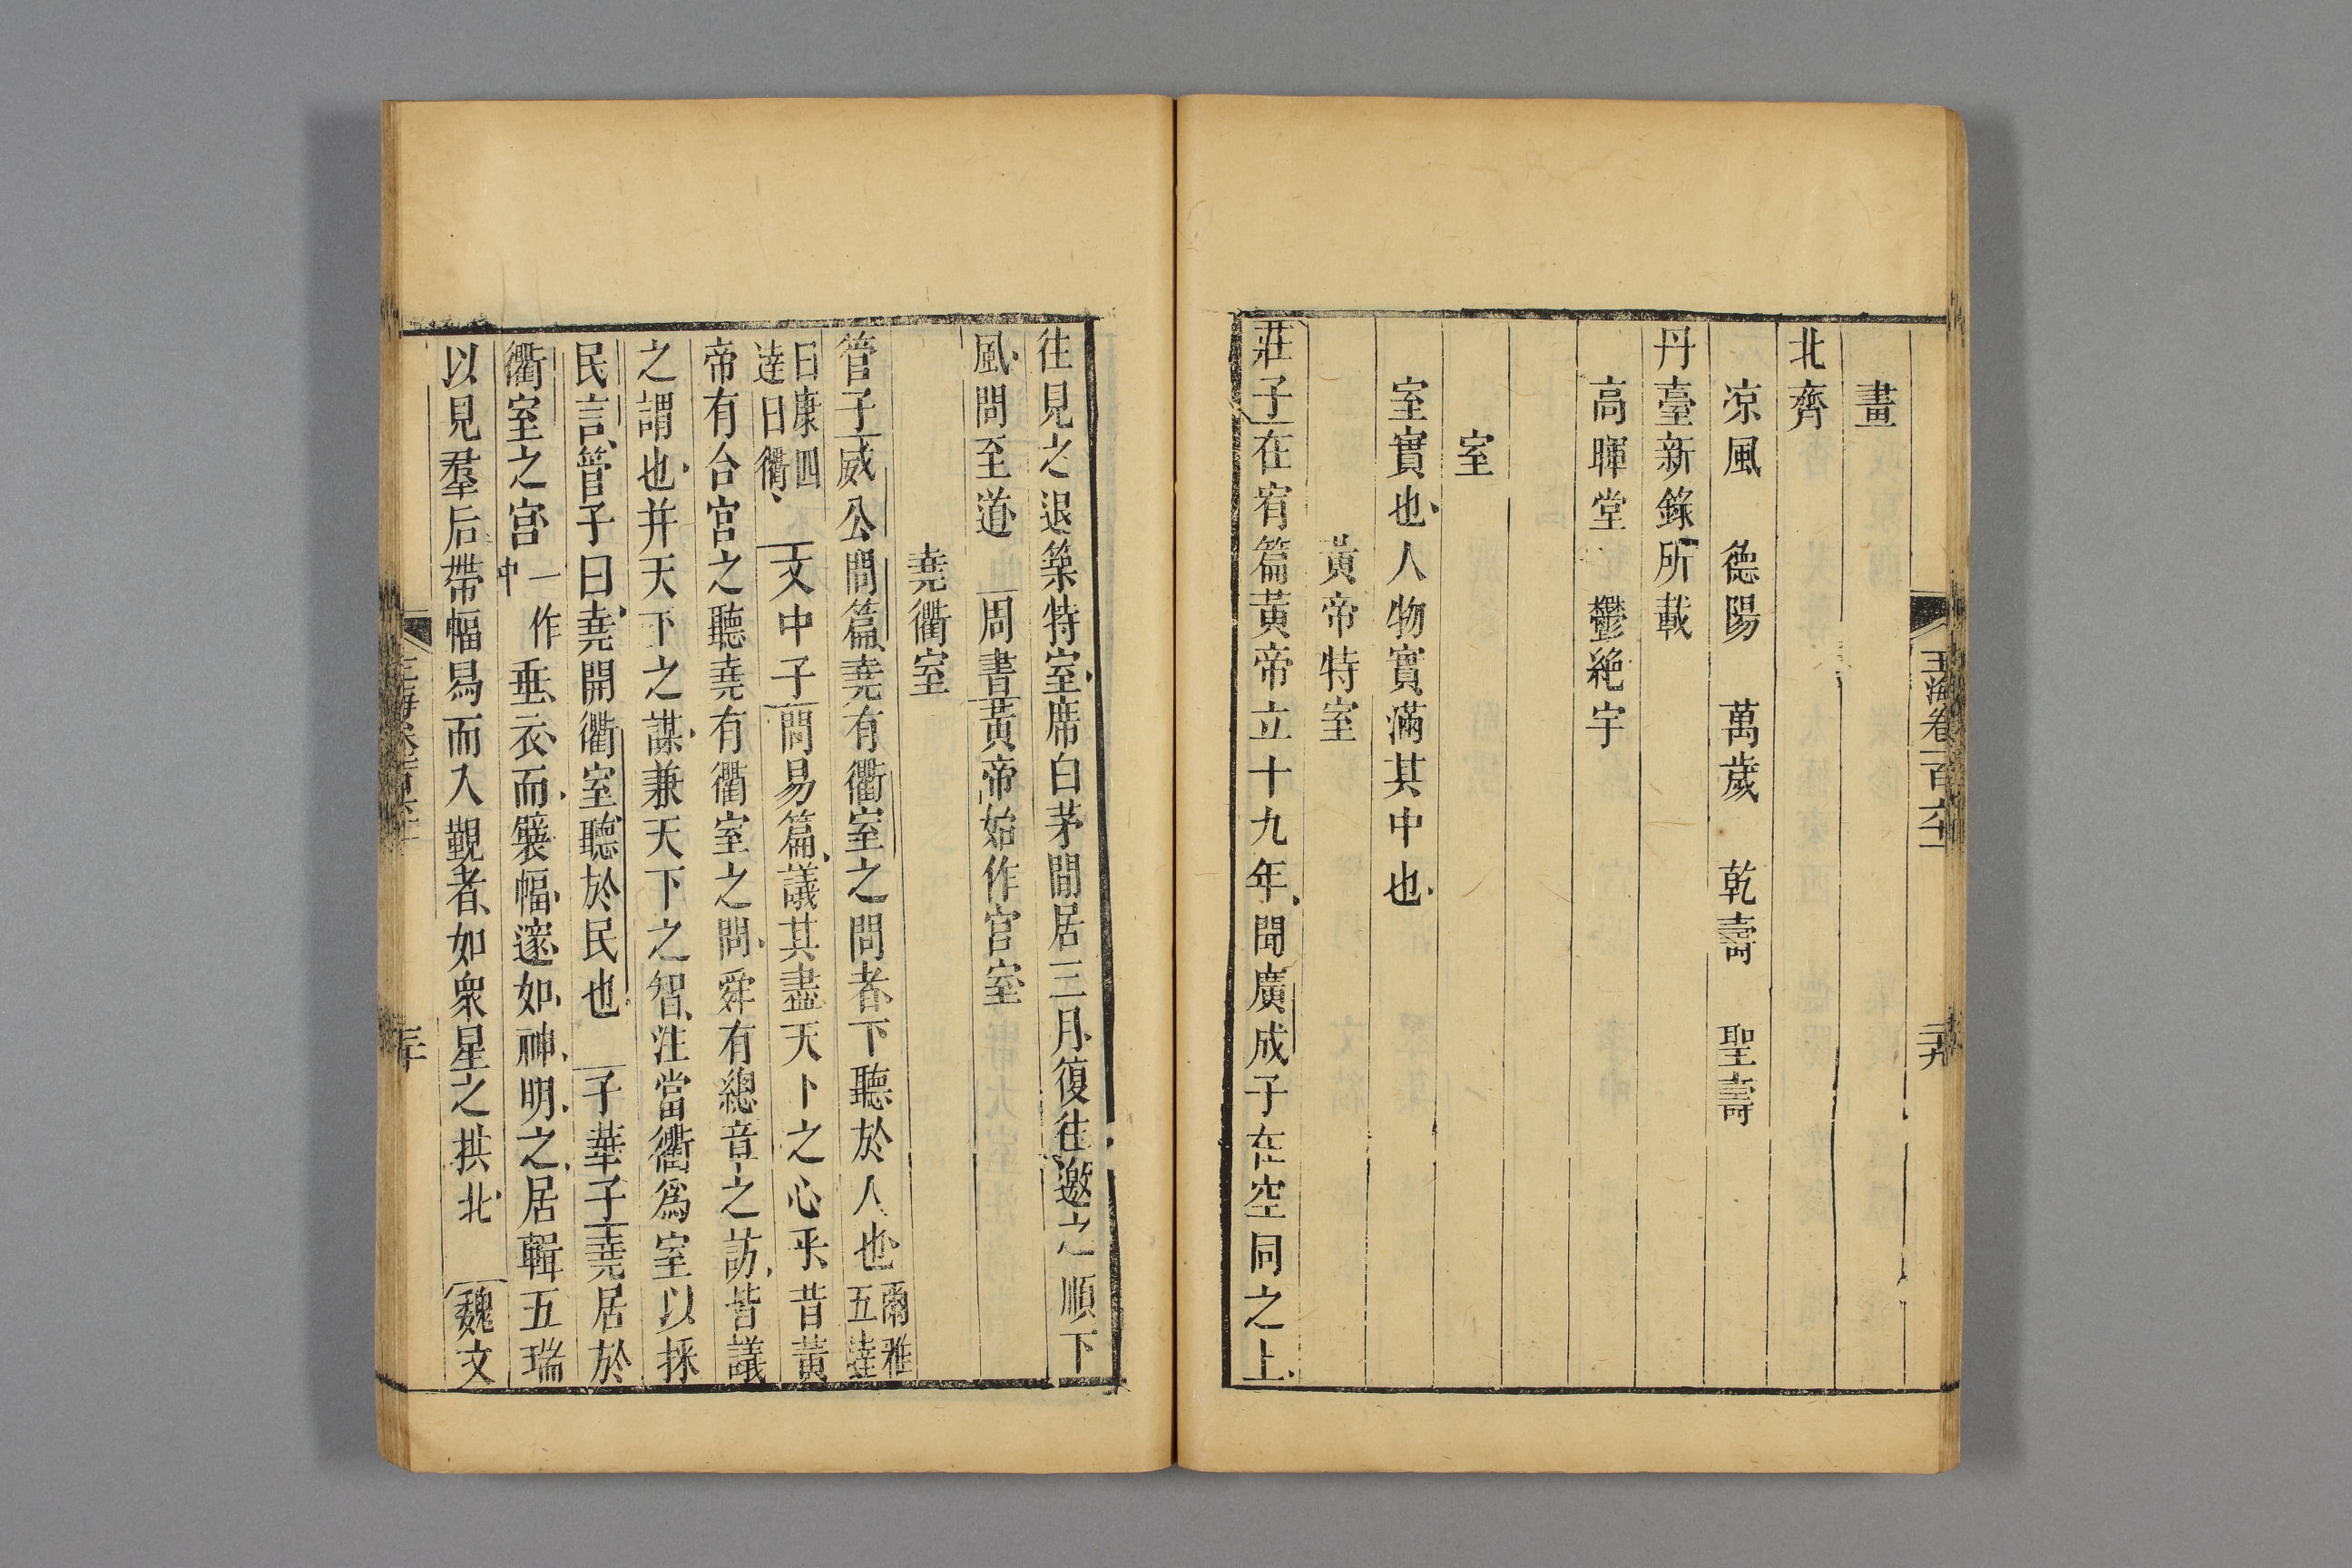 玉海卷一百六十一
二十九
畫
北齊
凉風 德陽 萬歲 乾壽 聖壽
丹臺新錄所載
高暉堂 鬱絶宇
室
室實也人物實滿其中也
黃帝特室
莊子在宥篇黃帝立十九年聞廣成子在空同之上
往見之退築特室席白茅閒居三月復往邀之順下
風問至道 周書黃帝始作宮室
堯衢室
管子威公問篇堯有衢室之問者下聽於人也爾雅五達
曰康四達曰衢 文中子問易篇議其盡天下之心乎昔黃
帝有合宮之聽堯有衢室之問舜有總章之訪皆議
之謂也并天下之謀兼天下之智注當衢爲室以採
民言管子曰堯開衢室聽於民也 子華子堯居於
衢室之宮一作中垂衣而襞幅邃如神明之居輯五瑞
以見羣后帶幅舃而入覲者如衆星之拱北 魏文
三十